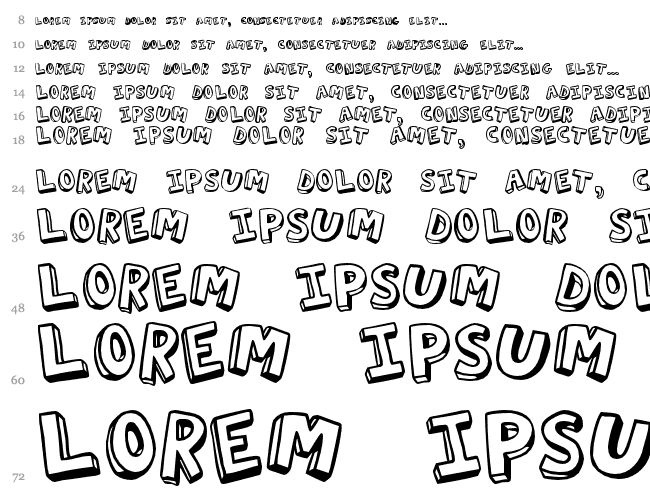 8 LOREM IPSUM DOLOR SIT AMET, CONSECTETUER ADIPISCING ELIT...
10 LOREM IPSUM DOLOR SIT AMET, CONSECTETUER ADIPISCING ELIT...
12 LOREM IPSUM DOLOR SIT AMET, CONSECTETUER ADIPISCING ELIT...
14 LOREM IPSUM DOLOR SIT AMET, CONSECTETUER ADIPISCIN
16 LOREM IPSUM DOLOR SIT AMET, CONSECTETUER ADIPI
18 LOREM IPSUM DOLOR SIT AMET, CONSECTETUE
24 LOREM IPSUM DOLOR SIT AMET, C
36 LOREM IPSUM DOLOR SI
48 LOREM IPSUM DOL
60 LOREM IPSUM
72 LOREM IPSU